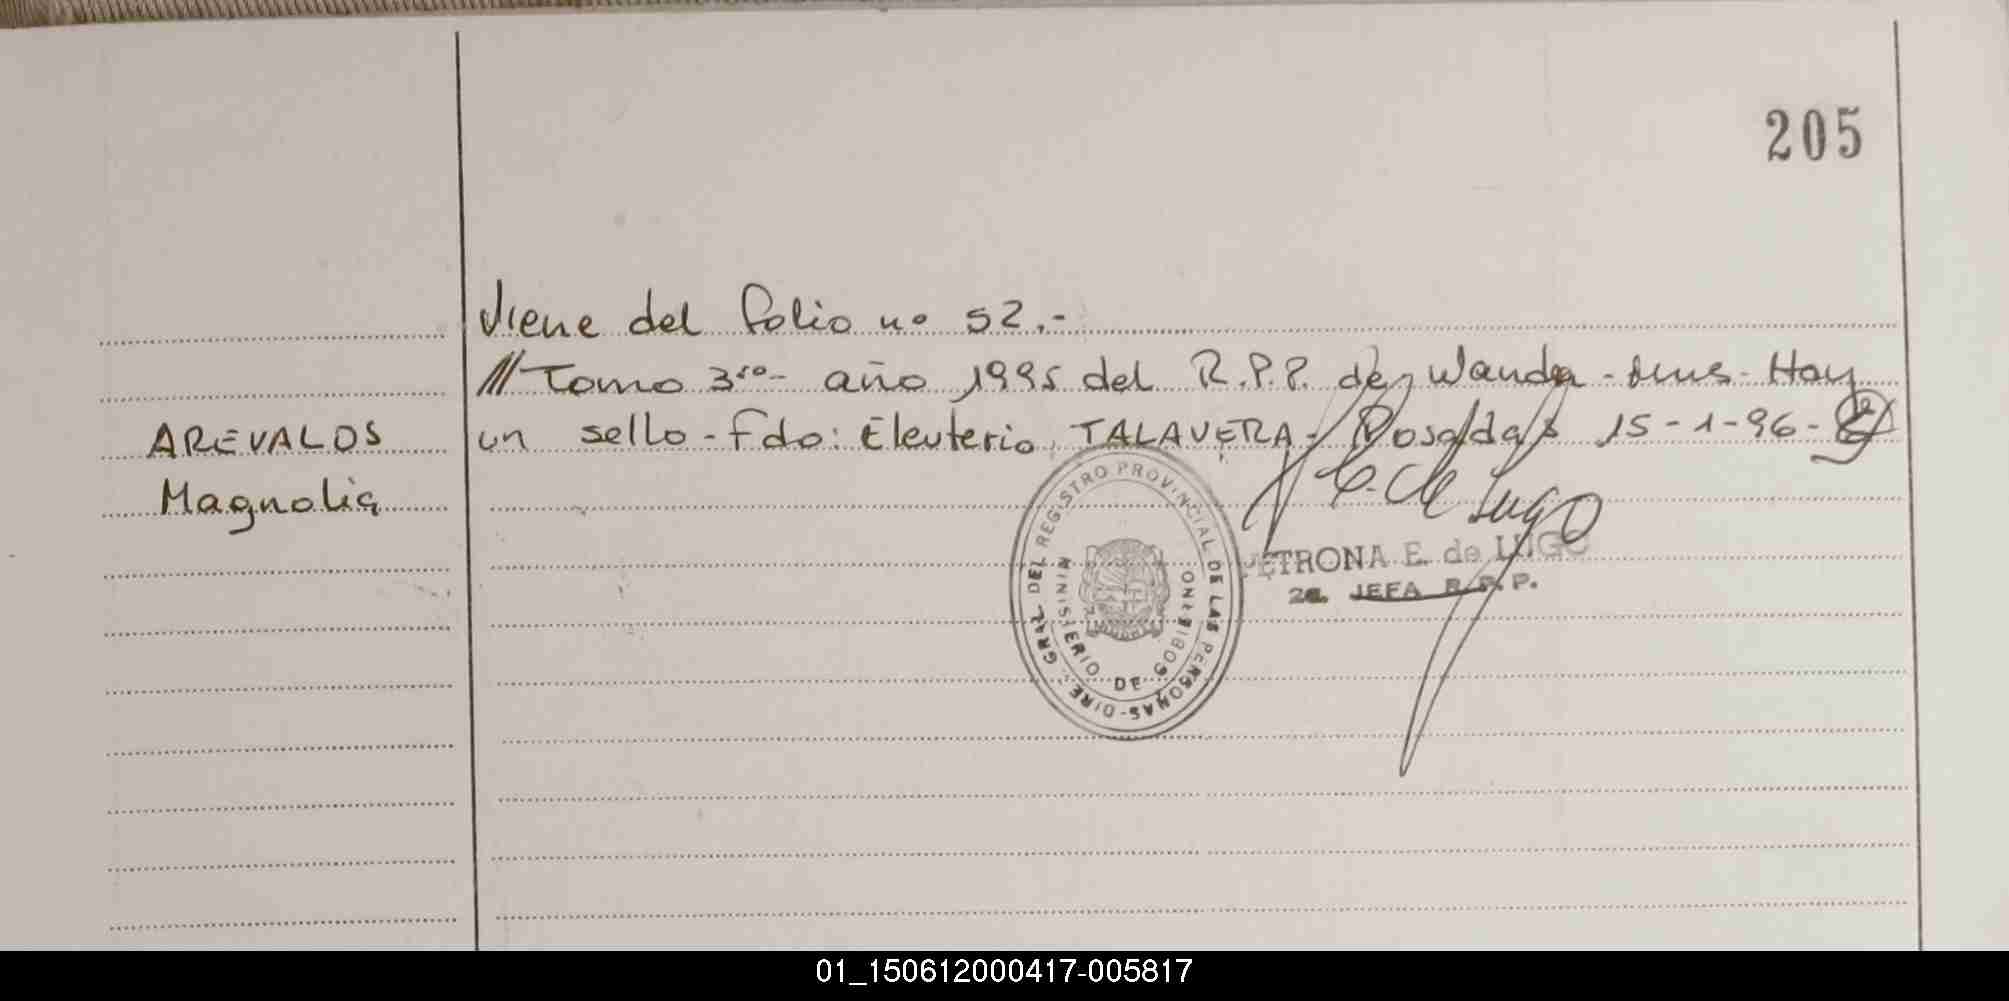 205
Viene del folio nº 52.-
///Tomo 3ro- año 1995 del R.P.P. de Wanda - Mnes - Hay
AREVALOS un sello - Fdo: Eleuterio TALAVERA - Posadas 15-1-96-
Magnolia
E. de Lugo
PETRONA E. de LUGO
2a. JEFA R.P.P.
DIRE. GRAL DEL REGISTRO PROVINCIAL DE LAS PERSONAS-
MINISTERIO DE GOBIERNO
01_150612000417-005817